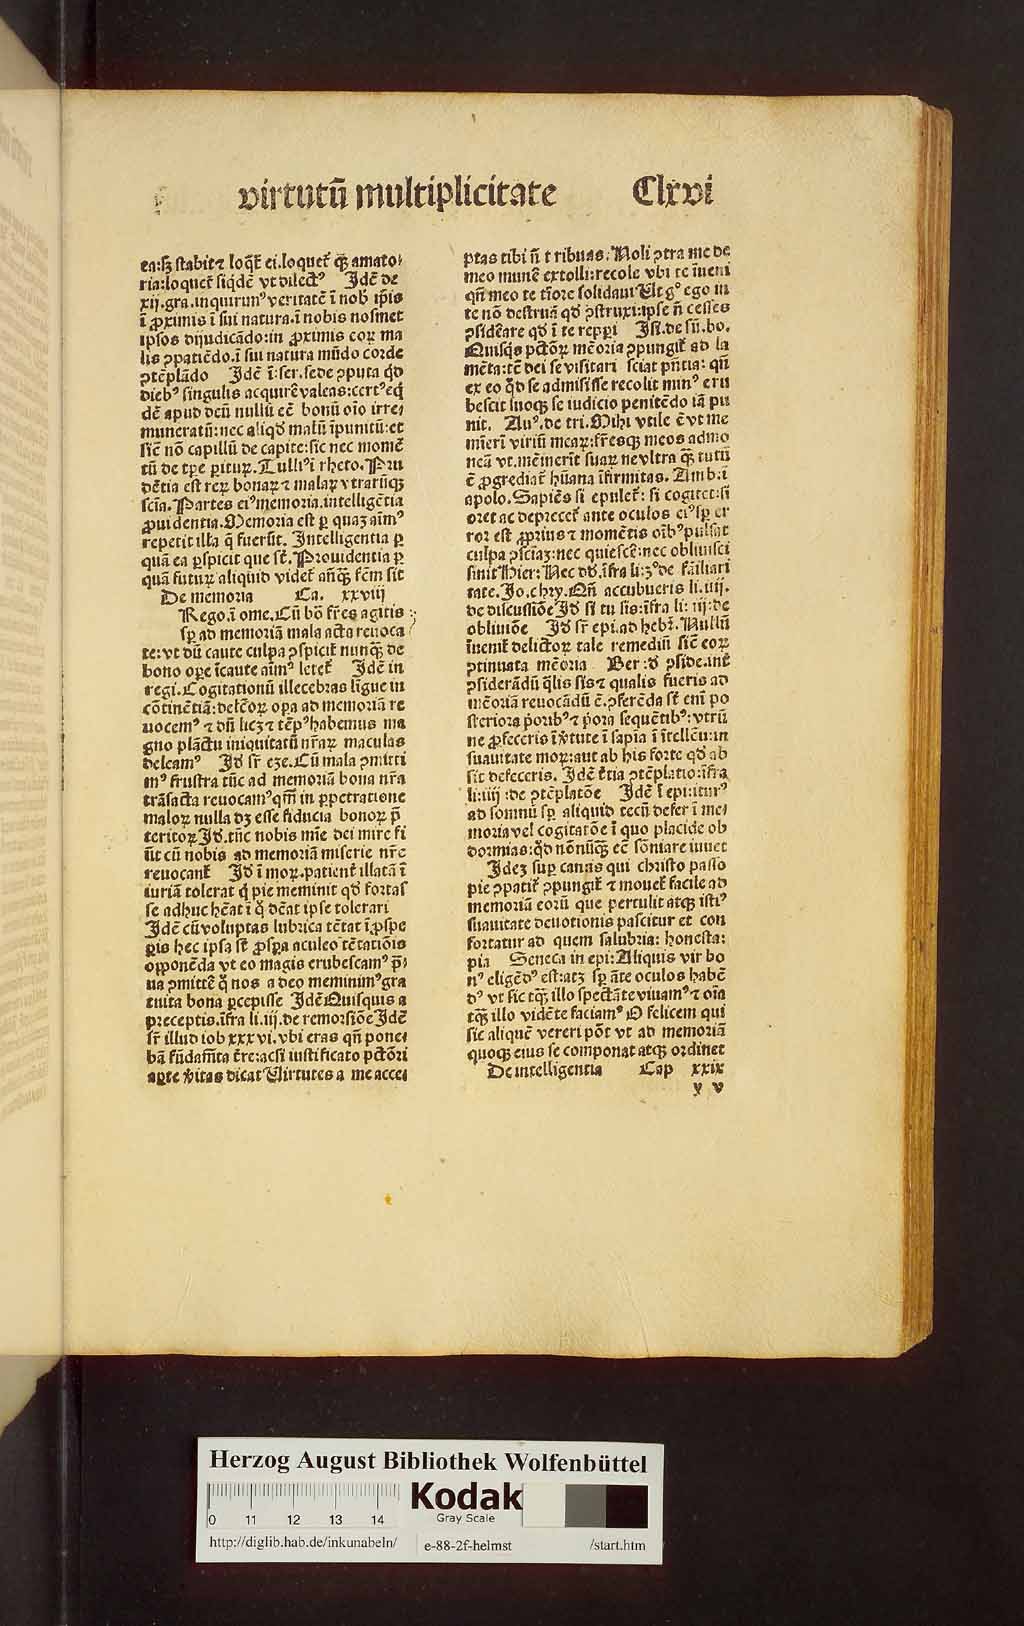 virtutū multiplicitate Clxvi
ea:sꝫ stabit ⁊ loq̄t̄ ei.loquet̄ qꝫ amato⸗
ria:loquet̄ siqdē vt dilect⁹ Jdē de
xij.gra.inquirun⁹ veritatē ī nob̄ ip̄is
ī ꝓximis ī sui natura.ī nobis nosmet
ipsos dijudicādo:in ꝓximis eoꝝ ma
lis ꝯpatiēdo.ī sui natura mūdo corde
ꝯtēplādo Jdē ī.ser.sede ꝯputa qd
dieb⁹ singulis acquirē valeas:cert⁹ eq̄
dē apud deū nullū eē bonū oīo irre⸗
muneratū:nec aliqd malū īpunitū:et
siē nō capillū de capite:sic nec momē
tū de tꝑe ꝑituꝝ.Tulli⁹ ī rheto.Pru
dētia est reꝝ bonaꝝ ⁊ malaꝝ vtrarūqꝫ
scīa.Partes ei⁹ memoria.intelligētia
ꝓuidentia.Memoria est ꝑ quaꝫ aīm⁹
repetit illa q̄ fuerūt.Intelligentia ꝑ
quā ea ꝑspicit que st̄.Prouidentia ꝑ
quā futuꝝ aliquid videt̄ añqꝫ fcm̄ sit
De memoria Ca. xxviii
Rego.ī ome.Cū bō fr̄es agitis
sꝑ ad memoriā mala acta reuoca
te:vt dū caute culpa ꝯspicit̄ nunqꝫ de
bono oꝑe īcaute aīm⁹ letet̄ Jdē in
regi.Cogitationū illecebras līgue in
cōtinētiā:delc̄oꝝ oꝑa ad memoriā re
uocem⁹ ⁊ dn̄ licꝫ ⁊ tēp⁹ habemus ma
gno plāctu iniquitatū nr̄aꝝ maculas
deleam⁹ Jd̄ sr̄ eze.Cū mala ꝯmitti
m⁹ frustra tūc ad memoriā bona nr̄a
trāsacta reuocam⁹ qm̄ in ꝑpetratione
maloꝝ nulla dꝫ esse fiducia bonoꝝ p̄
teritoꝝ Jd̄.tūc nobis mīe dei mire fi
ūt cū nobis ad memoriā miserie nr̄e
reuocant̄ Jd̄ ī moꝝ.patient̄ illatā ī
iuriā tolerat q̄ pie meminit qd fortas
se adhuc hēat ī q̄ dēat ipse tolerari
Jdē cū voluptas lubrica tētat ī ꝓspe
ris hec ipsa st̄ ꝓspꝑa aculeo tētatiōis
opponēda vt eo magis erubescam⁹ p̄⸗
ua ꝯmittē q̄ nos a deo meminim⁹ gra
tuita bona ꝑcepisse Jdē Quisquis a
preceptis.īfra li.iij.de remorsiōe Jdē
sr̄ illud iob xxxvi.vbi eras qn̄ pone⸗
bā fūdamta tr̄e:acsi iustificato pctōri
aꝑte v̄itas dicat Uirtutes a me acce⸗
ptas tibi n̄ tribuas.Noli ꝯtra me de
meo munē extolli:recole vbi te īueni
qn̄ meo te tīore solidaui Ut g⁰ ego in
te nō destruā qd ꝯstruxi:ipse n̄ cesses
ꝯsidēare qd ī te reꝑpi Isi.de sū.bo.
Quisqs pctōꝝ mēoria ꝯpungit̄ ad la
mēta:tē dei se visitari sciat pn̄tia: qn̄
ex eo qd se admisisse recolit min⁹ eru
bescit suoqꝫ se iudicio penitēdo iā pu
nit. Au⁹.de tri.Mihi vtile ē vt me
mīeri viriū meaꝝ:fr̄esqꝫ meos admo
neā vt.mēinerīt suaꝝ ne vltra qꝫ tutū
ē ꝓgrediat̄ hūana īfirmitas. Amb.ī
apolo.Sapiēs si epulet̄: si cogitet:si
oret ac deprecet̄ ante oculos ei⁹ sꝑ er
ror est ꝓprius ⁊ momētis oīb⁹ pulsat
culpa ꝯsciaꝫ:nec quiesce:nec obliuisci
sinit Hier: Nec dd.īfra li:3⁰ de fāiliari
tate.Jo.chry.Qn̄ accubueris li.iiij.
de discussiōe Jd̄ si tu sis:īfra li: iij:de
obliuiōe Jd̄ sr̄ epi.ad hebr̄.Nullū
īuenit̄ delictoꝝ tale remediū siē eoꝝ
ꝯtinuata mēoria Ber:d̄ ꝯside.int̄
ꝯsiderādū q̄lis sis ⁊ qualis fueris ad
mēoriā reuocādū ē.ꝯferēda st̄ em̄ po
steriora p̄orib⁹ ⁊ p̄ora sequētib⁹:vtrū
ne ꝓfeceris ī v̄tute ī sapīa ī ītellēu:in
suauitate moꝝ:aut ab his forte qd ab
sit defeceris. Jdē t̄tia ꝯtēplatio:īfra
li:iiij :de ꝯtēplatōe Jdē ī epi:itur⁹
ad somnū sꝑ aliquid tecū defer ī me⸗
moria vel cogitatōe ī quo placide ob
dormias:qd nōnūqꝫ eē sōniare iuuet
Jdeꝫ suꝑ canas qui christo passo
pie ꝯpatit̄ ꝯpungit̄ ⁊ mouet̄ facile ad
memoriā eorū que pertulit atqꝫ isti⁹
suauitate deuotionis pascitur et con
fortatur ad quem salubria: honesta:
pia Seneca in epi:Aliquis vir bo
n⁹ eligēd⁹ est:atꝫ sꝑ āte oculos habē
d⁹ vt sic tqꝫ illo spectāte viuam⁹ ⁊ oīa
tqꝫ illo vidēte faciam⁹ O felicem qui
sic aliquē vereri pōt vt ad memoriā
quoqꝫ eius se componat atqꝫ ordinet
De intelligentia Cap xxix
y v
Herzog August Bibliothek Wolfenbüttel
0 11 12 13 14
Kodak
Gray Scale
http://diglib.hab.de/inkunabeln/ e-88-2f-helmst /start.htm